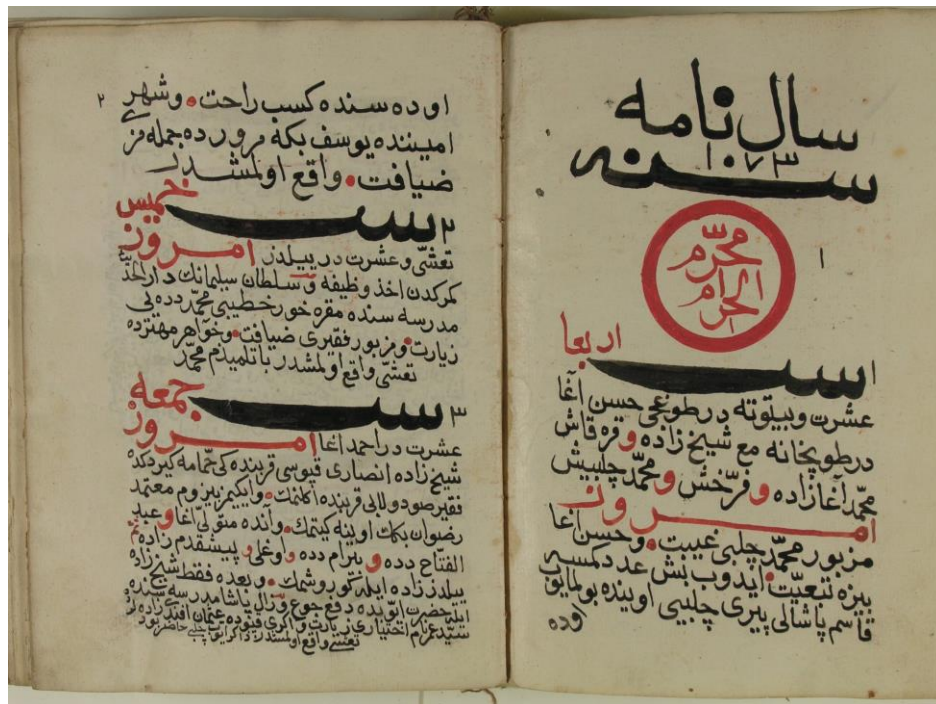 سال نامه
سنه ١٠٧٣
محرّم
الحرام
١
اربعا
١
عشرت وبيتوته در طوغجی حسن آغا
در طوپخانه مع شیخ زاده و قره قاش
محمّد آغازاده و فرّخش و محمّد چلبیش
امروز
مزبور محمّد چلبی غیبت و حسن آغا
بیزه تبعیّت ایدوب بش عدد کمسه
قاسم پاشالی پیری چلبیی اوینده بولمایوب
اوده
٢
اوده سنده کسب راحت و شهر
امیننده یوسف بکه مرورده جمله مز
ضیافت واقع اولمشدر
خمیس
٢
امروز
تعشّی و عشرت در ییلدز
کمرکدن اخذ وظیفه و سلطان سلیمانك دار الحدیث
مدرسه سنده مقره خور خطیبی محمّد دده یی
زیارت و مزبور فقیری ضیافت و خواهر مهترده
تعشّی واقع اولمشدر با تلمیذم محمّد
جمعه
٣
امروز
عشرت در احمد اغا
شیخ زاده انصاری قپوسی قربنده کی حمّامه کیردکده
فقیر صودولابی قربنده اکلنمك و ایکیمز بیزوم معتمد
رضوان بکك اوینه کیتمك و آنده متولّی آغا و عبد
الفتّاح دده و بیرام دده و اوغلی و پیشقدم زاده
ییلدز زاده ایله کوروشمك و بعده فقط شیخ زاده
ایله حضرت ایّوبده دفع جوع و زال پاشا مدرسه سنده
سیّد عزم اختیاری زیارت و اکری قپوده عثمان افندی زاده
تعشّی واقع اولمشدر ذاکر ایّوب چلبی حاضر بود